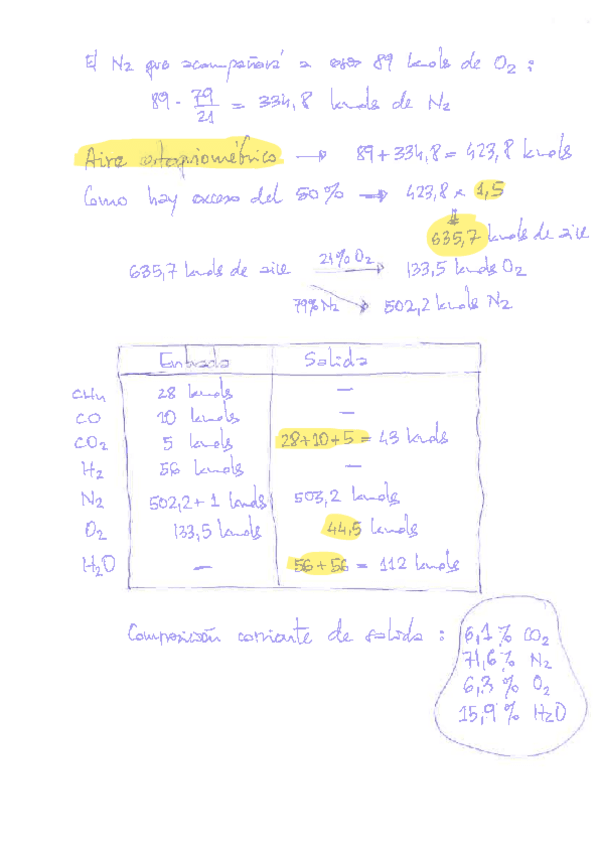 El N2 que acompañará a esos 89 kmols de O2 :
89 · 79/21 = 334,8 kmols de N2
Aire estequiométrico → 89 + 334,8 = 423,8 kmols
Como hay exceso del 50% → 423,8 × 1,5
⇓
635,7 kmols de aire
635,7 kmols de aire 21% O2 → 133,5 kmols O2
79% N2 → 502,2 kmols N2
Entrada Salida
CH4 28 kmols —
CO 10 kmols —
CO2 5 kmols 28+10+5 = 43 kmols
H2 56 kmols —
N2 502,2 + 1 kmols 503,2 kmols
O2 133,5 kmols 44,5 kmols
H2O — 56 + 56 = 112 kmols
Composición corriente de salida : 6,1 % CO2
71,6 % N2
6,3 % O2
15,9 % H2O